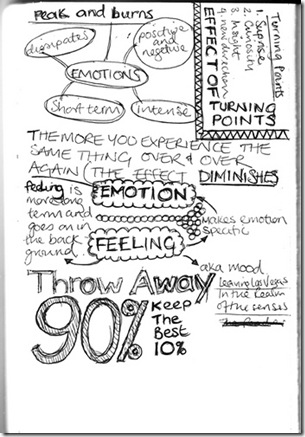 Peak and burns
dissipates
positive
and
negative
EMOTIONS
Short term
intense
Turning Points
1. Suprose
2. Curiosity
3. Insight
4. new direction
EFFECT OF
TURNING
POINTS
THE MORE YOU EXPERIENCE THE
SAME THING OVER & OVER
AGAIN (THE EFFECT DIMINISHES
feeling is
more long
term and
goes on in
the back
ground.
EMOTION
Makes emotion
specific
FEELING
aka mood
Throw Away
90%
Keep
The
Best
10%
Leaving Las Vegas
In the Realm
of the senses